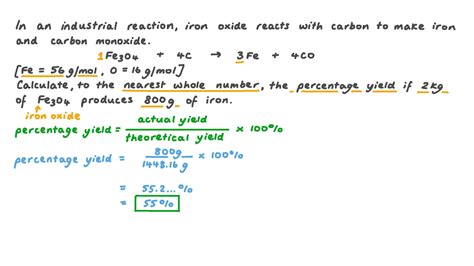 In an industrial reaction, iron oxide reacts with carbon to make iron
and carbon monoxide.
1Fe₃O₄ + 4C → 3Fe + 4CO
[Fe = 56g/mol, O = 16g/mol]
Calculate, to the nearest whole number, the percentage yield if 2kg
of Fe₃O₄ produces 800g of iron.
iron oxide
percentage yield = actual yield / theoretical yield × 100%
percentage yield = 800g / 1448.16g × 100%
= 55.2...%
= 55%